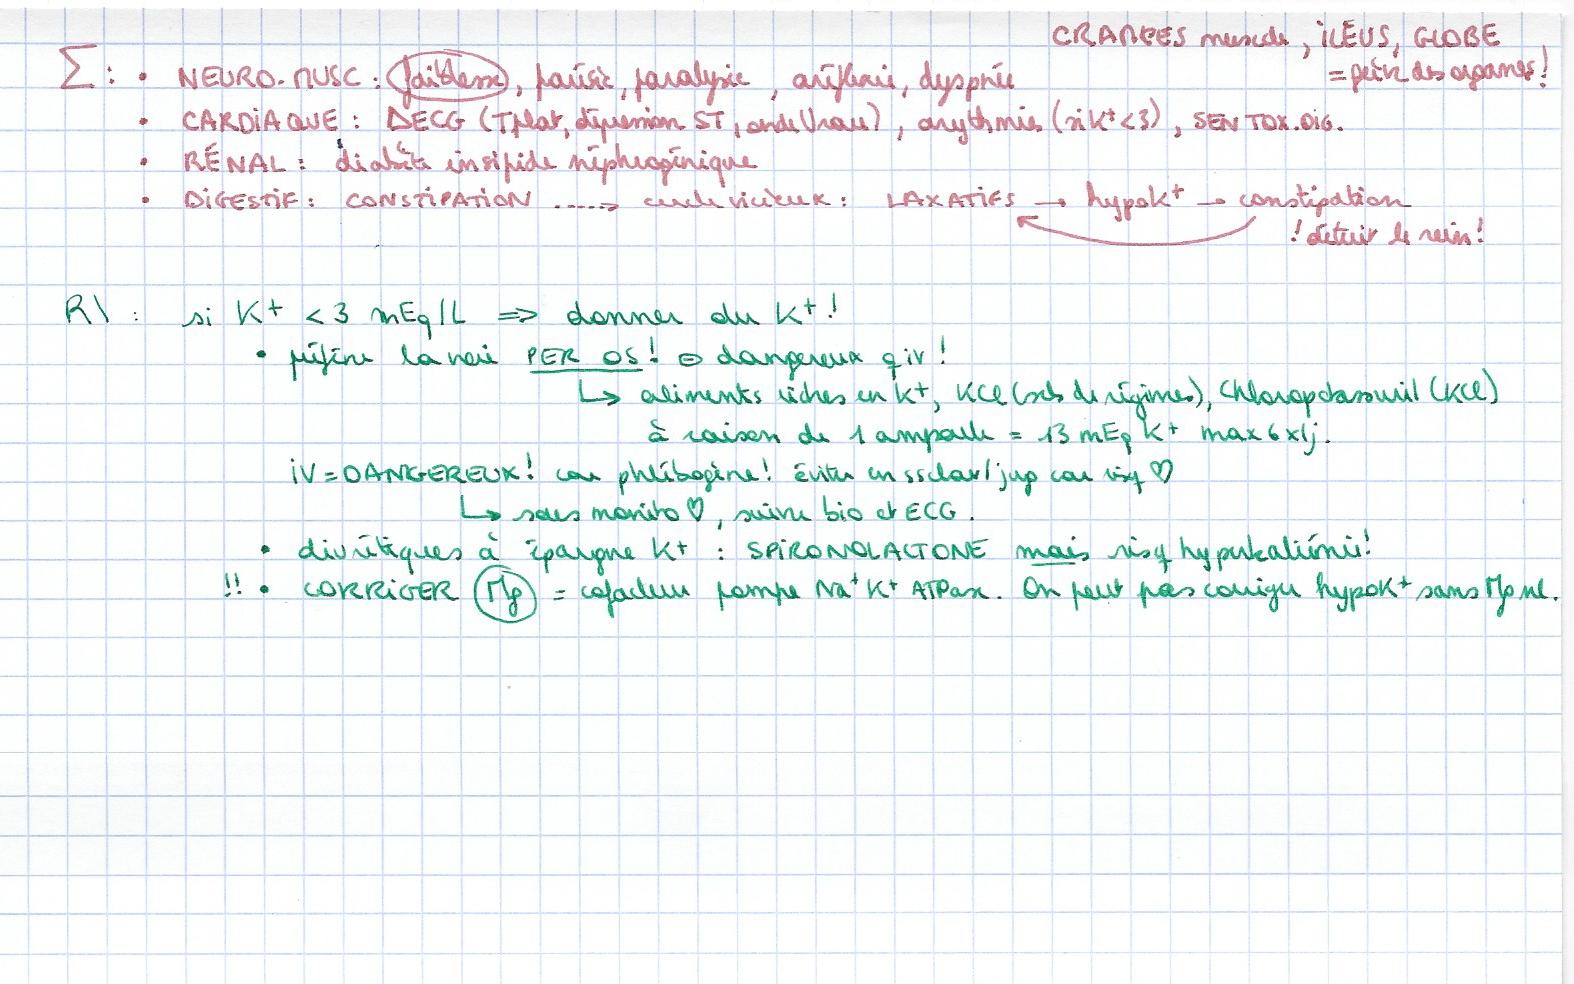 CRAMPES muscle, iLÉUS, GLOBE
Σ: • NEURO-MUSC: faiblesse, parésie, paralysie, aréflexie, dyspnée
= partie des organes!
• CARDIAQUE: ΔECG (T plat, dépression ST, onde U rare), arythmies (si K+ <3), SEN TOX. DIG.
• RÉNAL: diabète insipide néphrogénique
• DIGESTIF: CONSTIPATION .....→ cercle vicieux: LAXATIFS → hypoK+ → constipation
! détruit le rein!
R\: si K+ <3 mEq/L => donner du K+!
• préfére la voie PER OS! ⊖ dangereux q iv!
↳ aliments riches en K+, KCl (sels de régimes), Chloropotassuril (KCl)
à raison de 1 ampoule = 13 mEq K+ max 6x/j.
iV = DANGEREUX! car phlébogène! éviter en ssclav/jug car risq ♡
↳ sous monito ♡, suivre bio et ECG.
• diurétiques à épargne K+: SPIRONOLACTONE mais risq hyperkaliémie!
!! • CORRIGER Mg = cofacteur pompe Na+ K+ ATPase. On peut pas corriger hypoK+ sans Mg nl.